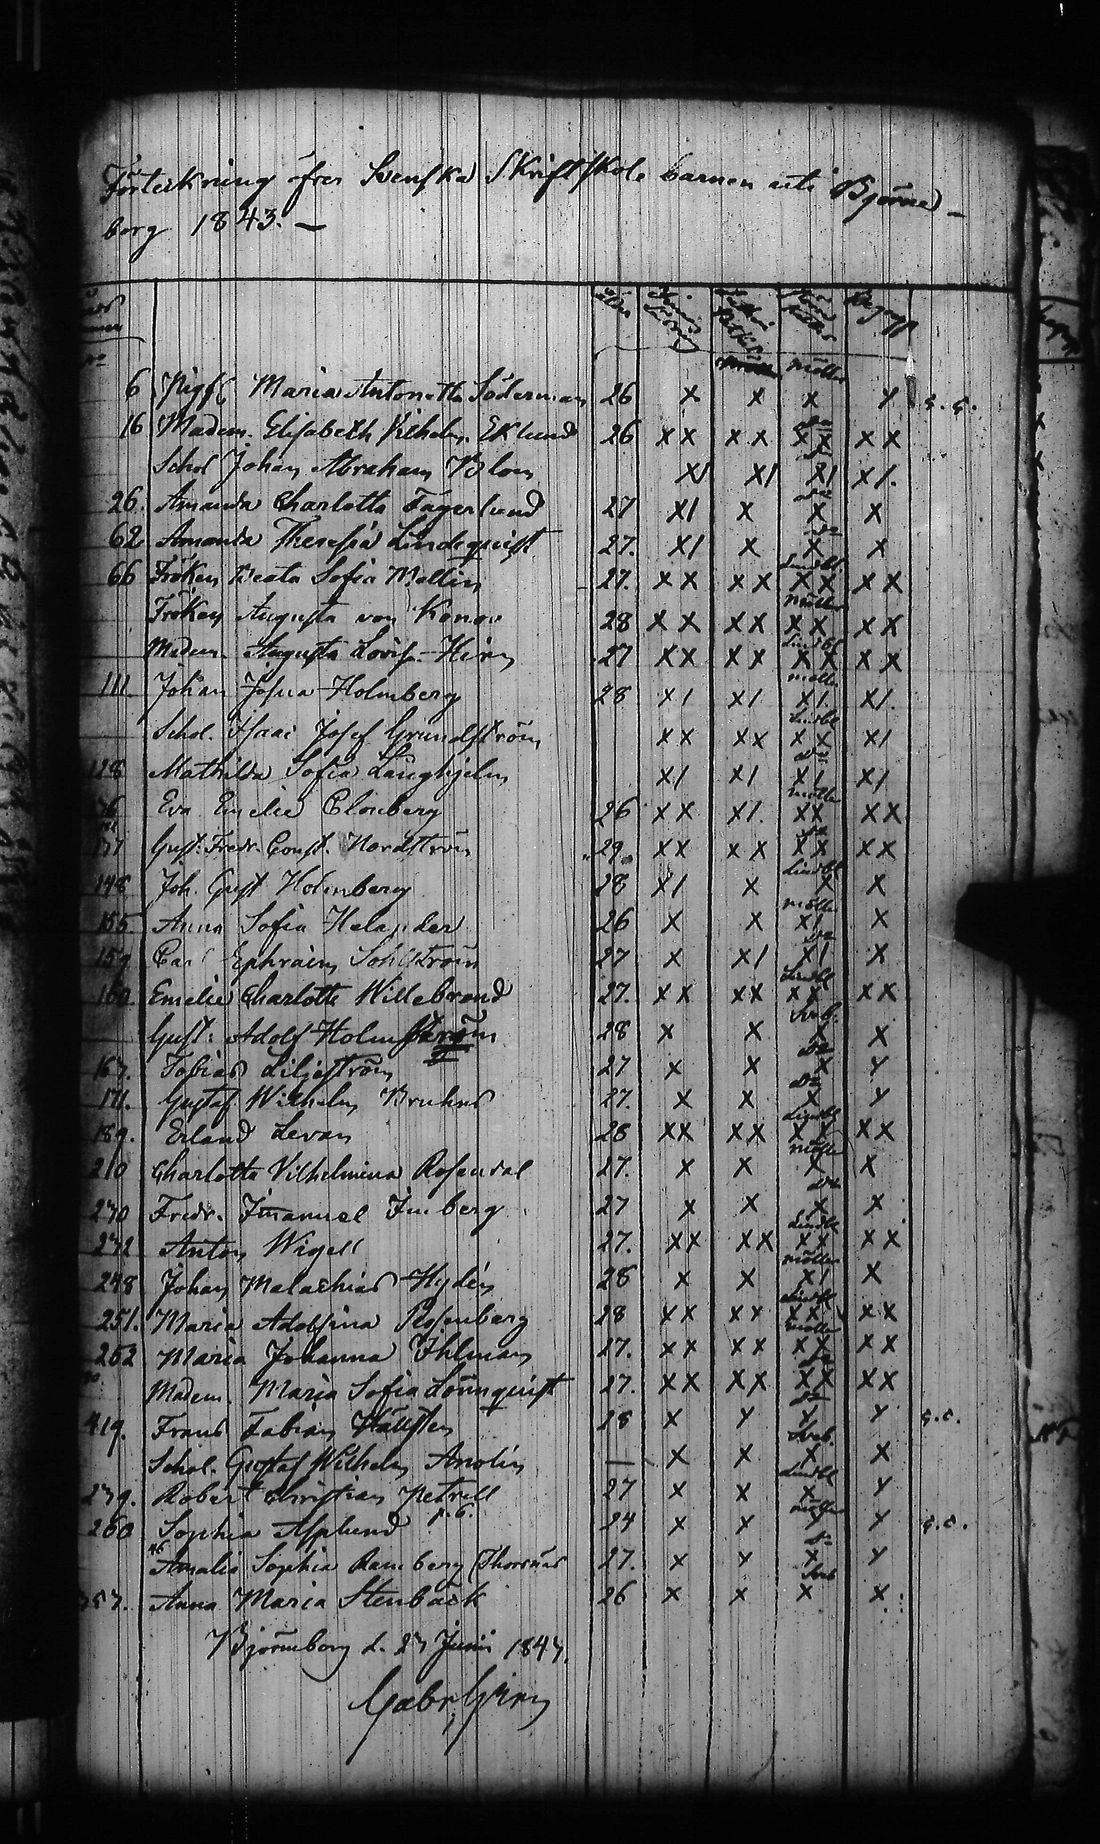 Förtekning öfver Svenska Skriftskole barnen uti Björne-
borg 1843. —
6 Maria Antonetta Söderman 26 x x x x
16 Madem. Elisabeth Vilhelm. Eklund 26 xx xx xx xx
Schol Johan Abraham Blom x/ x/ x/ x/.
26. Amanda Charlotta Fagerlund 27 x/ x x x
62 Amanda Theresia Lindequist 27. x/ x x x
66 Fröken Beata Sofia Mellin 27. xx xx xx xx
Fröken Augusta von Konow 28 xx xx xx xx
Madem. Augusta Lovis. Hirn 27 xx xx xx xx
111. Johan Josua Holmberg 28 x/ x/ x/. x/.
Schol. Isaac Josef Grundström xx xx xx x/
128 Mathilda Sofia Långhjelm x/ x/ x/ x/
Eva Emelie Blomberg 26 xx x/. xx xx
Gust. Fredr. Const. Nordström 29. xx xx xx xx
148 Joh. Gust Holmberg 28 x/ x x x
155 Anna Sofia Helander 26 x x x/ x
Carl Ephraim Sohlström 27 x x/ x/ x
160. Emelie Charlotte Willebrand 27. xx xx xx xx
Gust: Adolf Holmström 28 x x x x
167. Tobias Liljeström 27 x x x x
171. Gustaf Wilhelm Bruhns 27. x x x x
189. Erland Levan 28 xx xx xx xx
210 Charlotta Vilhelmina Rosendal 27. x x x x
230 Fredr. Imanuel Imberg 27 x x x x
232 Anton Wigell 27. xx xx xx xx
248 Johan Malachias Hydén 28 x x x/ x
251. Maria Adolfina Rosenberg 28 xx xx xx xx
252 Maria Johanna Ihlman 27. xx xx xx xx
Madem. Maria Sofia Lönnquist 27. xx xx xx xx
419. Frans Fabian Hällsten 28 x x x x
Schol. Gustaf Wilhelm Amolin — x x x x
239. Robert Christian Petrell 27 x x x x
260 Sophia Asplund 24 x x x x
Amalia Sophia Ramberg (Thornäs 27. x x x x
357. Anna Maria Stenbäck 26 x x x x
Björneborg d. 27 Juni 1843.
Gabr. Hirn